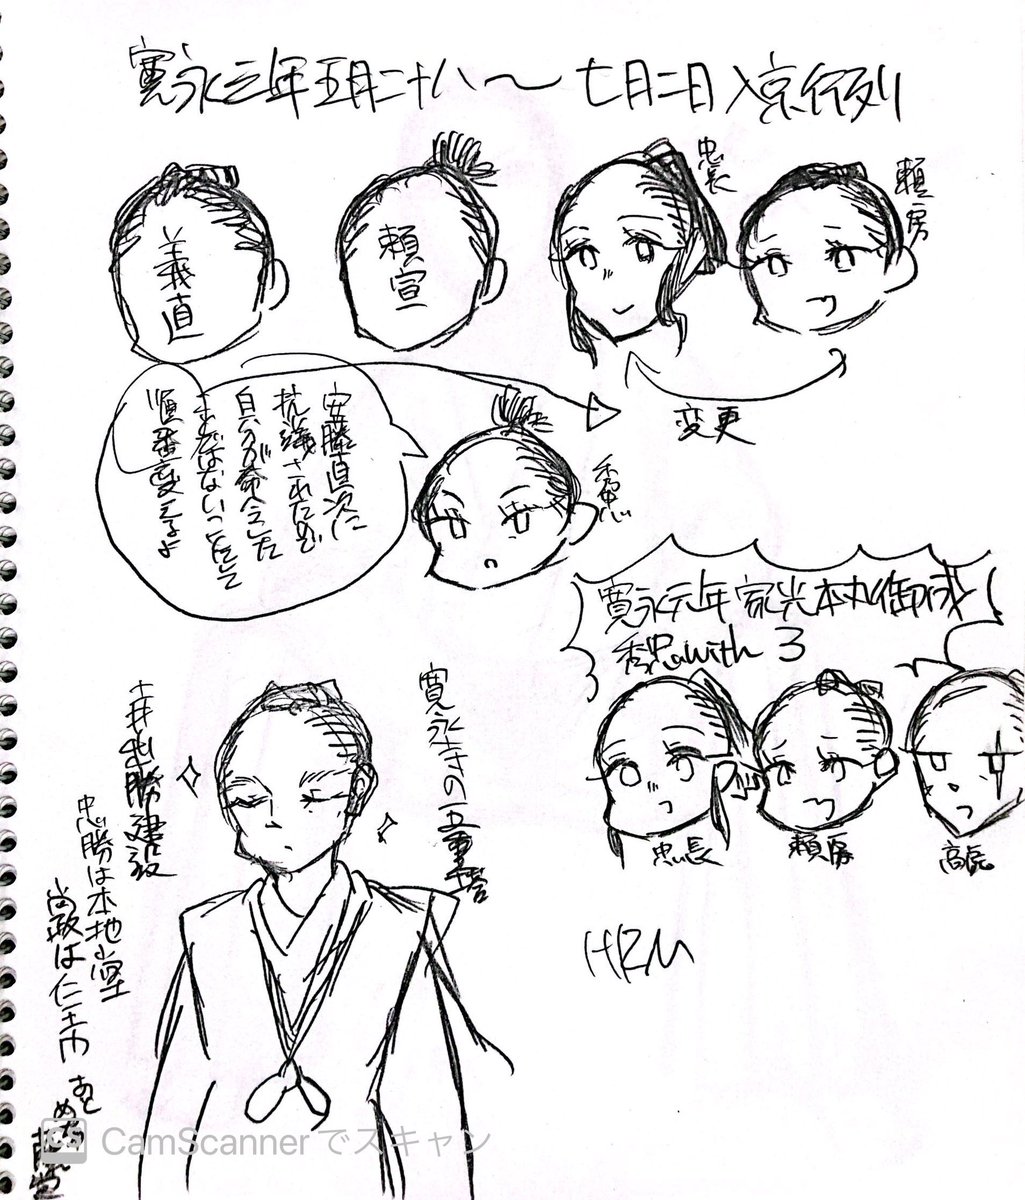 寛永三年五月二十八〜七月二日入京行列
義直
頼宣
忠長
頼房
変更
安藤直次に
抗議されたので
自分が命令した
まではないってことにして
順番変えるよ
秀忠
寛永元年家光本丸御成
秀忠with 3
忠長
頼房
高虎
HRM
寛永寺の五重塔
土井利勝建設
忠勝は本地堂
尚政は仁王門
あと
CamScannerでスキャン